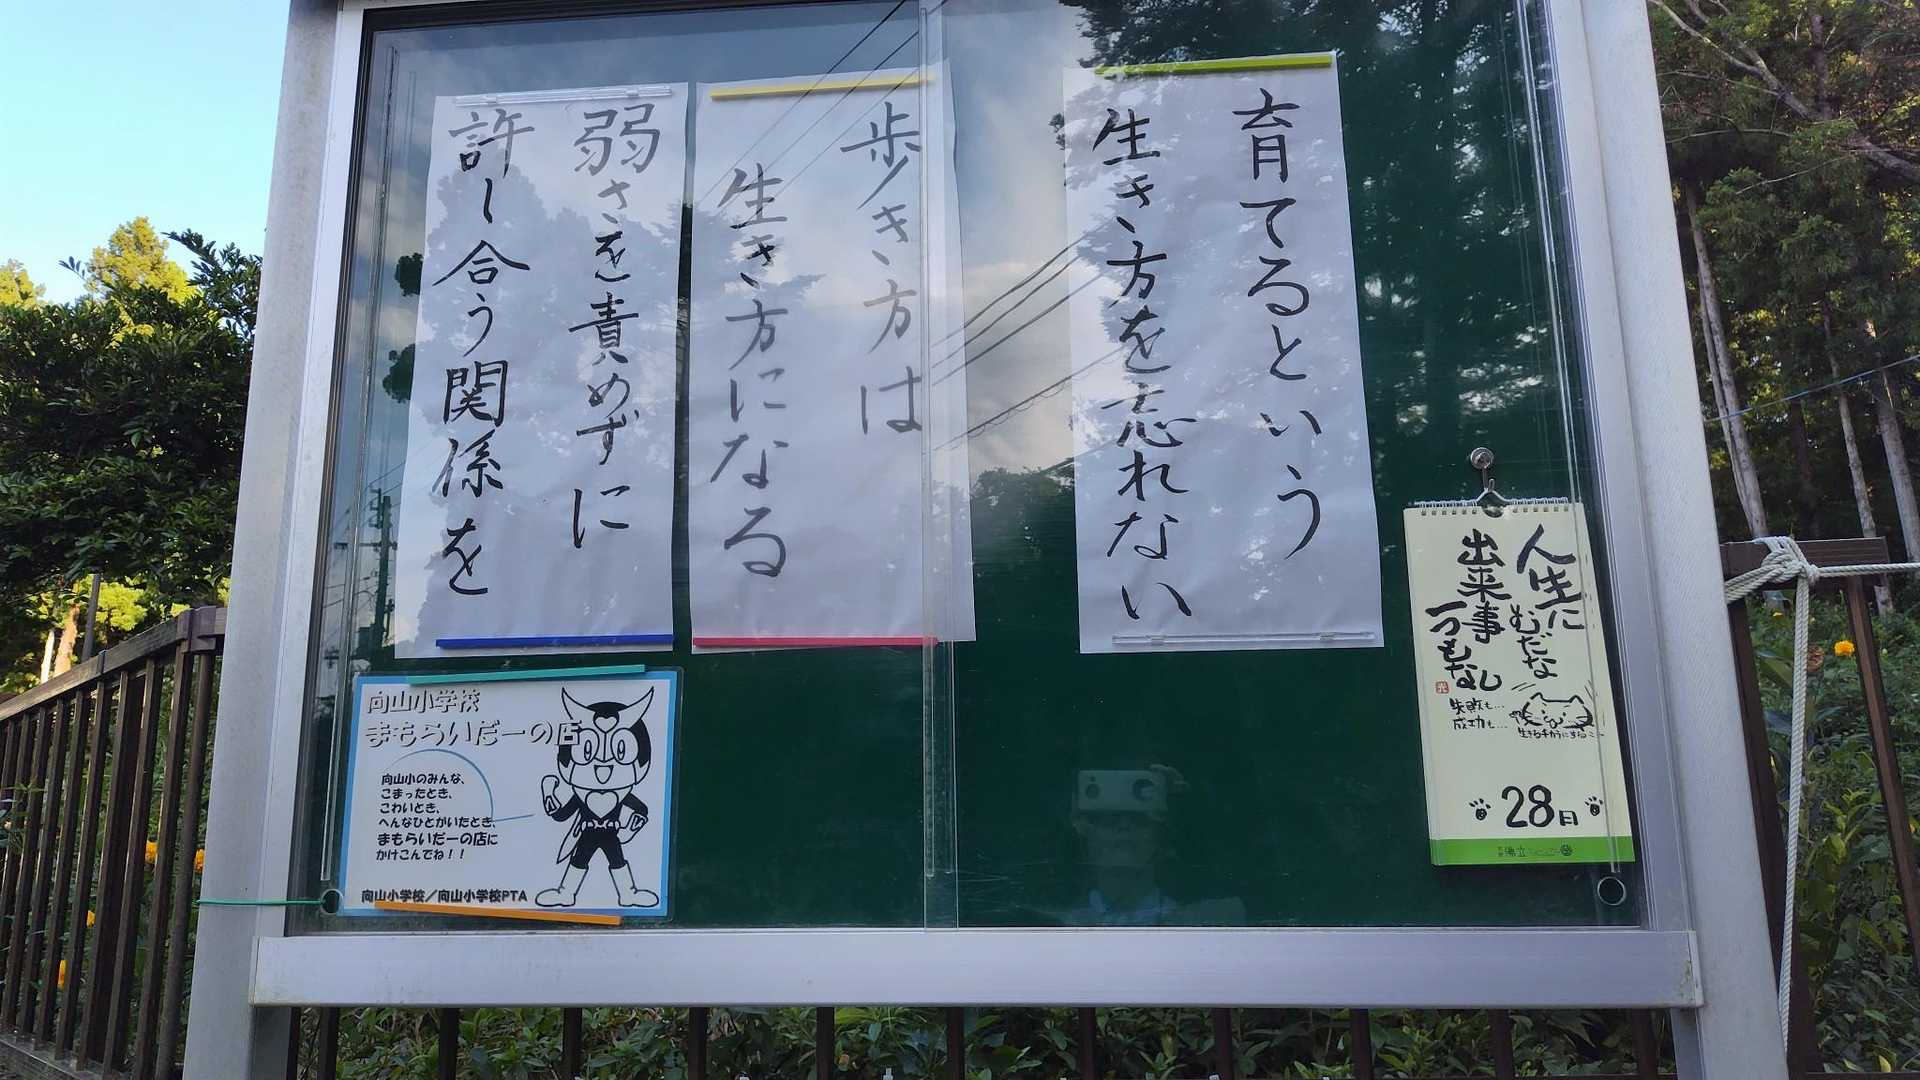 育てるという
生き方を忘れない
歩き方は
生き方になる
弱さを責めずに
許し合う関係を
人生に
むだな
出来事
一つもなし
失敗も…
成功も…
28日
向山小学校
まもらいだーの店
向山小のみんな、
こまったとき、
こわいとき、
へんなひとがいたとき、
まもらいだーの店に
かけこんでね！！
向山小学校／向山小学校PTA